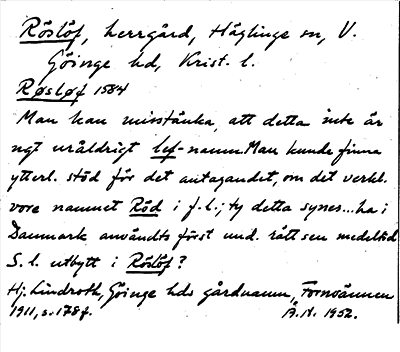 Röslöf, herrgård, Häglinge sn, V.
Göinge hd, Krist. l.
Røsløf 1584
Man kan misstänka, att detta inte är
ngt uråldrigt lef-namn. Man kunde finna
ytterl. stöd för det antagandet, om det verkl.
vore namnet Röd i f.l.; ty detta synes...ha i
Danmark använts först und. rätt sen medeltid
S. l. utbytt i Röslöf?
Hj. Lindroth, Göinge hds gårdnamn, Fornvännen
1911, s. 178 f.
Å.H. 1952.